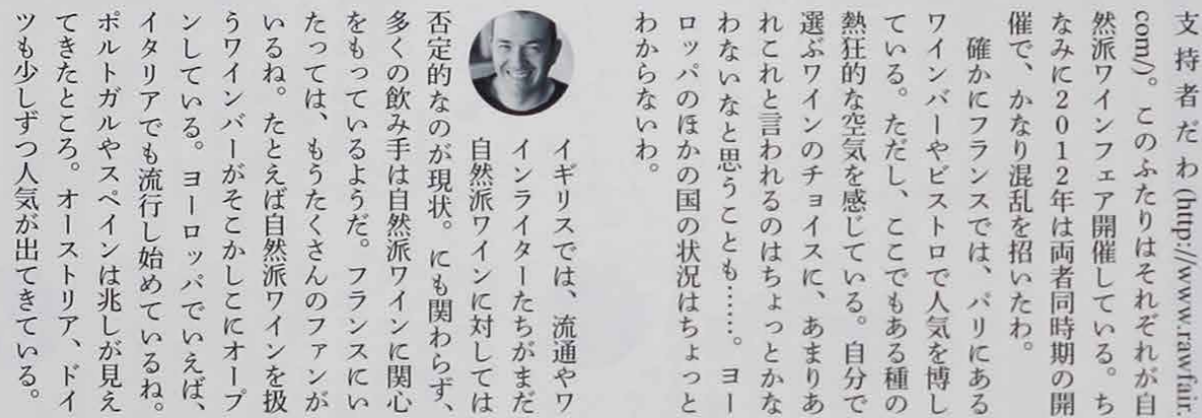 支持者だわ(http://www.rawfair.
com/)。このふたりはそれぞれが自
然派ワインフェア開催している。ち
なみに2012年は両者同時期の開
催で、かなり混乱を招いたわ。
確かにフランスでは、パリにある
ワインバーやビストロで人気を博し
ている。ただし、ここでもある種の
熱狂的な空気を感じている。自分で
選ぶワインのチョイスに、あまりあ
れこれと言われるのはちょっとかな
わないなと思うことも……。ヨー
ロッパのほかの国の状況はちょっと
わからないわ。
イギリスでは、流通やワ
インライターたちがまだ
自然派ワインに対しては
否定的なのが現状。にも関わらず、
多くの飲み手は自然派ワインに関心
をもっているようだ。フランスにい
たっては、もうたくさんのファンが
いるね。たとえば自然派ワインを扱
うワインバーがそこかしこにオープ
ンしている。ヨーロッパでいえば、
イタリアでも流行し始めているね。
ポルトガルやスペインは兆しが見え
てきたところ。オーストリア、ドイ
ツも少しずつ人気が出てきている。